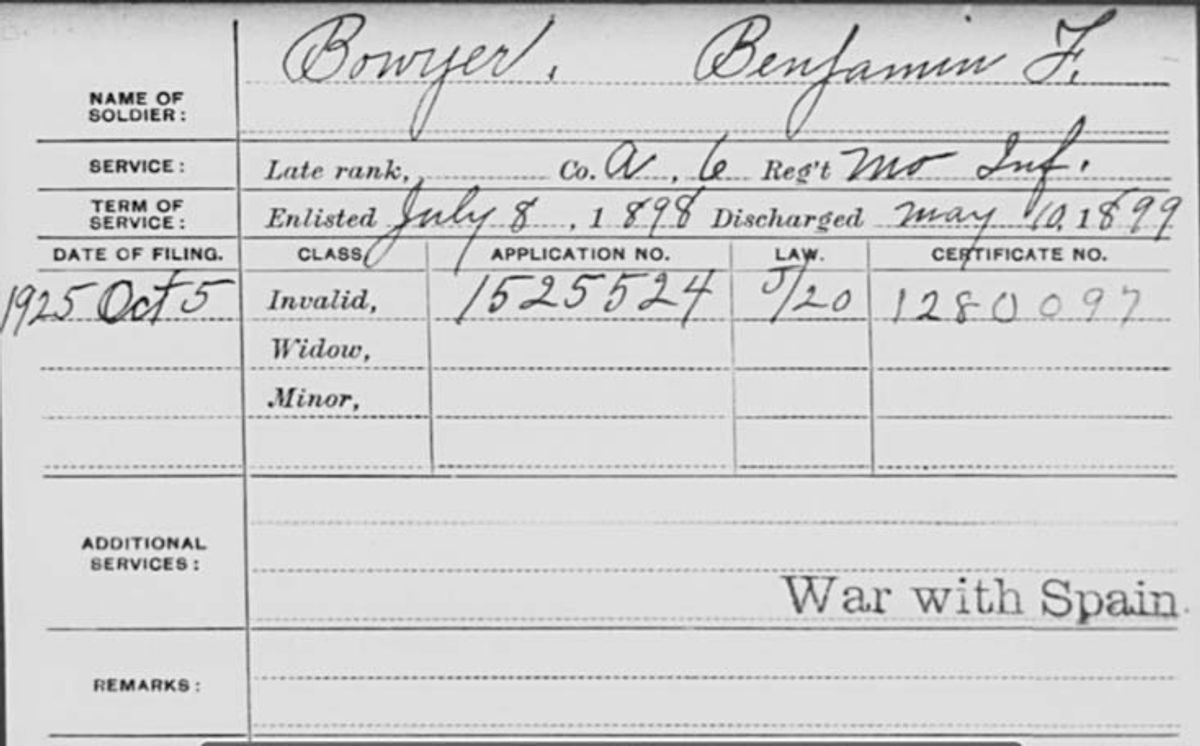 NAME OF SOLDIER: Bowyer, Benjamin F.
SERVICE: Late rank, Co. A, 6 Reg't Mo Inf.
TERM OF SERVICE: Enlisted July 8, 1898 Discharged May 10, 1899
DATE OF FILING. CLASS APPLICATION NO. LAW. CERTIFICATE NO.
1925 Oct 5 Invalid, 1525524 J/20 1280097
Widow,
Minor,
ADDITIONAL SERVICES:
War with Spain.
REMARKS: